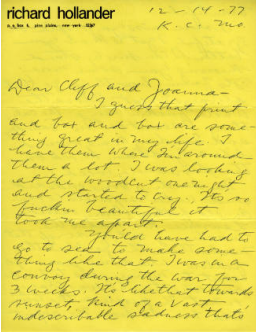 richard hollander
pine plains, new york 12567
12-14-77
K.C. Mo
Dear Cliff and Joanna-
I guess that print
and box and box are some-
thing great in my life. I
have them where I'm around
them a lot. I was looking
at the woodcut one night
and started to cry. Its so
fuckin beautiful it
took me apart.
You'd have had to
go to sea to make some-
thing like that. I was in a
convoy during the war for
3 weeks. It's like that towards
sunset, kind of a vast
indescribable sadness thats